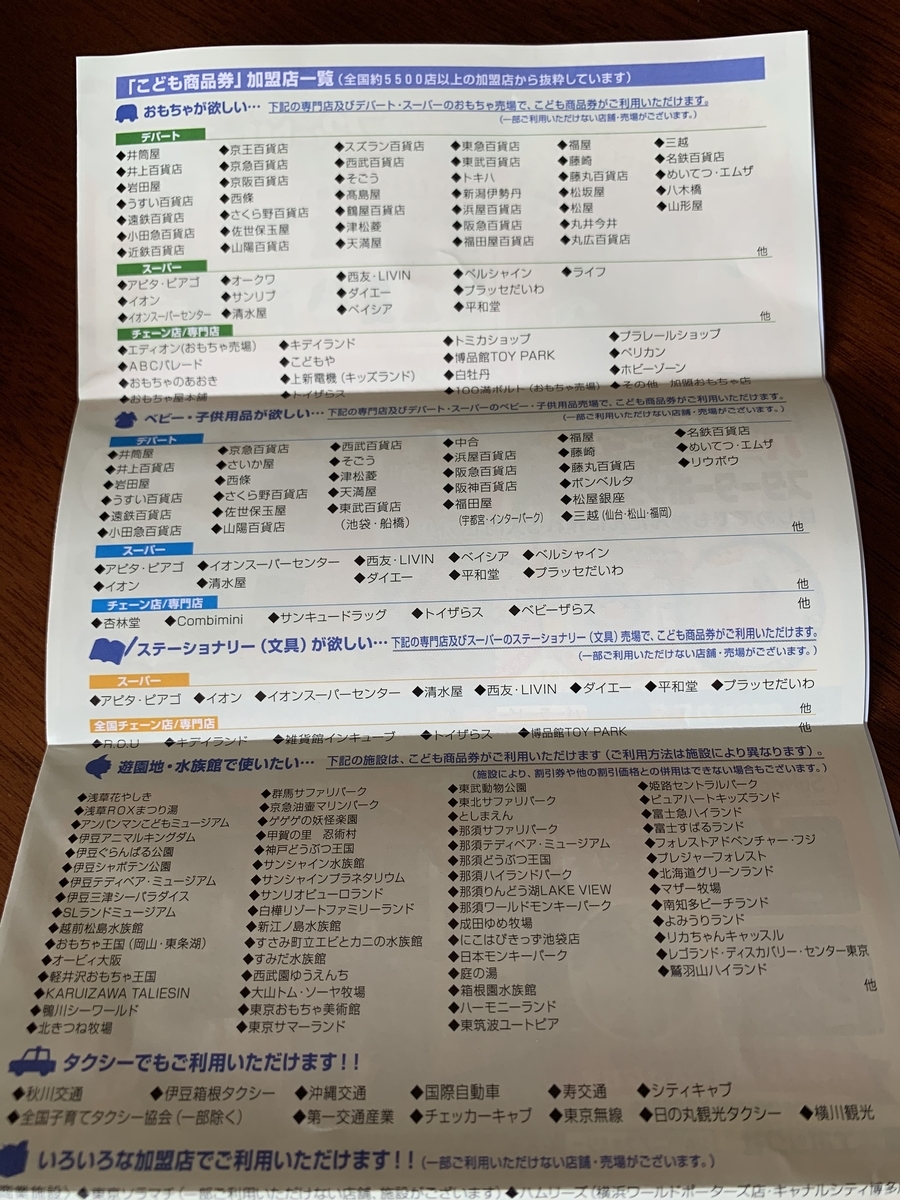 「こども商品券」加盟店一覧(全国約5500店以上の加盟店から抜粋しています)
おもちゃが欲しい… 下記の専門店及びデパート・スーパーのおもちゃ売場で、こども商品券がご利用いただけます。
(一部ご利用いただけない店舗・売場がございます。)
デパート
◆井筒屋 ◆京王百貨店 ◆スズラン百貨店 ◆東急百貨店 ◆福屋 ◆三越
◆井上百貨店 ◆京急百貨店 ◆西武百貨店 ◆東武百貨店 ◆藤崎 ◆名鉄百貨店
◆岩田屋 ◆京阪百貨店 ◆そごう ◆トキハ ◆藤丸百貨店 ◆めいてつ・エムザ
◆うすい百貨店 ◆西條 ◆髙島屋 ◆新潟伊勢丹 ◆松坂屋 ◆八木橋
◆遠鉄百貨店 ◆さくら野百貨店 ◆鶴屋百貨店 ◆浜屋百貨店 ◆松屋 ◆山形屋
◆小田急百貨店 ◆佐世保玉屋 ◆津松菱 ◆阪急百貨店 ◆丸井今井
◆近鉄百貨店 ◆山陽百貨店 ◆天満屋 ◆福田屋百貨店 ◆丸広百貨店
他
スーパー
◆アピタ・ピアゴ ◆オークワ ◆西友・LIVIN ◆ベルシャイン ◆ライフ
◆イオン ◆サンリブ ◆ダイエー ◆プラッセだいわ
◆イオンスーパーセンター ◆清水屋 ◆ベイシア ◆平和堂
他
チェーン店/専門店
◆エディオン(おもちゃ売場) ◆キデイランド ◆トミカショップ ◆プラレールショップ
◆ABCパレード ◆こどもや ◆博品館TOY PARK ◆ペリカン
◆おもちゃのあおき ◆上新電機(キッズランド) ◆白牡丹 ◆ホビーゾーン
◆おもちゃ屋本舗 ◆トイザらス ◆100満ボルト(おもちゃ売場) ◆その他 加盟おもちゃ店
ベビー・子供用品が欲しい… 下記の専門店及びデパート・スーパーのベビー・子供用品売場で、こども商品券がご利用いただけます。
(一部ご利用いただけない店舗・売場がございます。)
デパート
◆井筒屋 ◆京急百貨店 ◆西武百貨店 ◆中合 ◆福屋 ◆名鉄百貨店
◆井上百貨店 ◆さいか屋 ◆そごう ◆浜屋百貨店 ◆藤崎 ◆めいてつ・エムザ
◆岩田屋 ◆西條 ◆津松菱 ◆阪急百貨店 ◆藤丸百貨店 ◆リウボウ
◆うすい百貨店 ◆さくら野百貨店 ◆天満屋 ◆阪神百貨店 ◆ボンベルタ
◆遠鉄百貨店 ◆佐世保玉屋 ◆東武百貨店 ◆福田屋 ◆松屋銀座
◆小田急百貨店 ◆山陽百貨店 (池袋・船橋) (宇都宮・インターパーク) ◆三越(仙台・松山・福岡)
他
スーパー
◆アピタ・ピアゴ ◆イオンスーパーセンター ◆西友・LIVIN ◆ベイシア ◆ベルシャイン
◆イオン ◆清水屋 ◆ダイエー ◆平和堂 ◆プラッセだいわ
他
チェーン店/専門店
◆杏林堂 ◆Combimini ◆サンキュードラッグ ◆トイザらス ◆ベビーザらス
他
ステーショナリー(文具)が欲しい… 下記の専門店及びスーパーのステーショナリー(文具)売場で、こども商品券がご利用いただけます。
(一部ご利用いただけない店舗・売場がございます。)
スーパー
◆アピタ・ピアゴ ◆イオン ◆イオンスーパーセンター ◆清水屋 ◆西友・LIVIN ◆ダイエー ◆平和堂 ◆プラッセだいわ
他
全国チェーン店/専門店
◆R.O.U ◆キデイランド ◆雑貨館インキューブ ◆トイザらス ◆博品館TOY PARK
他
遊園地・水族館で使いたい… 下記の施設は、こども商品券がご利用いただけます(ご利用方法は施設により異なります)。
(施設により、割引券や他の割引価格との併用はできない場合もございます。)
◆浅草花やしき ◆群馬サファリパーク ◆東武動物公園 ◆姫路セントラルパーク
◆浅草ROXまつり湯 ◆京急油壷マリンパーク ◆東北サファリパーク ◆ピュアハートキッズランド
◆アンパンマンこどもミュージアム ◆ゲゲゲの妖怪楽園 ◆としまえん ◆富士急ハイランド
◆伊豆アニマルキングダム ◆甲賀の里 忍術村 ◆那須サファリパーク ◆富士すばるランド
◆伊豆ぐらんぱる公園 ◆神戸どうぶつ王国 ◆那須テディベア・ミュージアム ◆フォレストアドベンチャー・フジ
◆伊豆シャボテン公園 ◆サンシャイン水族館 ◆那須どうぶつ王国 ◆プレジャーフォレスト
◆伊豆テディベア・ミュージアム ◆サンシャインプラネタリウム ◆那須ハイランドパーク ◆北海道グリーンランド
◆伊豆三津シーパラダイス ◆サンリオピューロランド ◆那須りんどう湖LAKE VIEW ◆マザー牧場
◆SLランドミュージアム ◆白樺リゾートファミリーランド ◆那須ワールドモンキーパーク ◆南知多ビーチランド
◆越前松島水族館 ◆新江ノ島水族館 ◆成田ゆめ牧場 ◆よみうりランド
◆おもちゃ王国(岡山・東条湖) ◆すさみ町立エビとカニの水族館 ◆にこはぴきっず池袋店 ◆リカちゃんキャッスル
◆オービィ大阪 ◆すみだ水族館 ◆日本モンキーパーク ◆レゴランド・ディスカバリー・センター東京
◆軽井沢おもちゃ王国 ◆西武園ゆうえんち ◆庭の湯 ◆鷲羽山ハイランド
◆KARUIZAWA TALIESIN ◆大山トム・ソーヤ牧場 ◆箱根園水族館
◆鴨川シーワールド ◆東京おもちゃ美術館 ◆ハーモニーランド
◆北きつね牧場 ◆東京サマーランド ◆東筑波ユートピア
他
タクシーでもご利用いただけます!!
◆秋川交通 ◆伊豆箱根タクシー ◆沖縄交通 ◆国際自動車 ◆寿交通 ◆シティキャブ
◆全国子育てタクシー協会(一部除く) ◆第一交通産業 ◆チェッカーキャブ ◆東京無線 ◆日の丸観光タクシー ◆横川観光
いろいろな加盟店でご利用いただけます!!(一部ご利用いただけない店舗・売場がございます。)
商業施設) ◆東京ソラマチ(一部ご利用いただけない店舗、施設がございます) ◆ハムリーズ(横浜ワールドポーターズ店・キャナルシティ博多